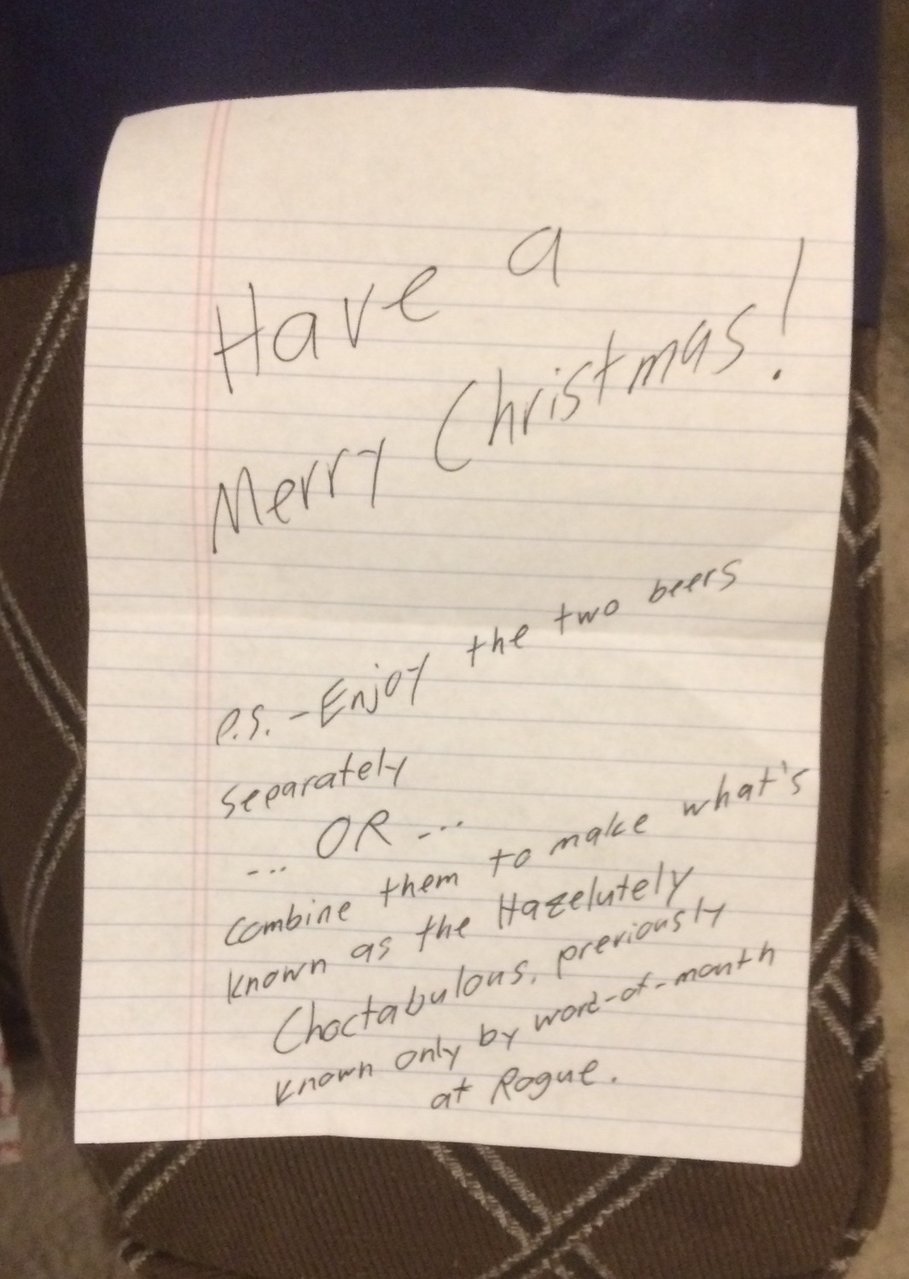 Have a
Merry Christmas!
P.S. - Enjoy the two beers
separately
... OR ...
combine them to make what's
known as the Hazelutely
Choctabulous, previously
known only by word-of-mouth
at Rogue.